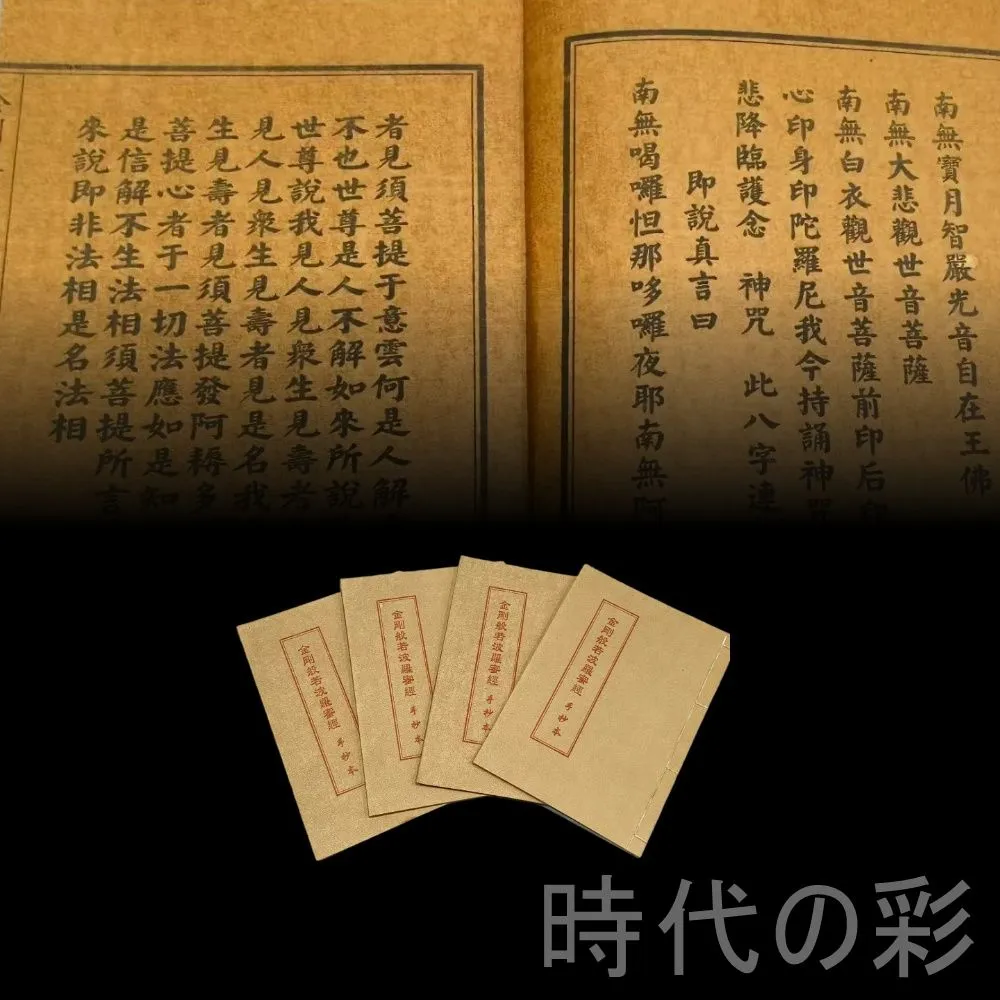 南無寶月智嚴光音自在王佛
南無大悲觀世音菩薩
南無白衣觀世音菩薩前印后印
心印身印陀羅尼我今持誦神咒
悲降臨護念 神咒 此八字連
即說真言曰
南無喝囉怛那哆囉夜耶南無阿
者見須菩提于意雲何是人解
不也世尊是人不解如來所說
世尊說我見人見衆生見壽者
見人見衆生見壽者見是名我
生見壽者見須菩提發阿耨多
菩提心者于一切法應如是知
是信解不生法相須菩提所言
來說即非法相是名法相
金剛般若波羅蜜經 手抄本
金剛般若波羅蜜經 手抄本
金剛般若波羅蜜經 手抄本
金剛般若波羅蜜經 手抄本
時代の彩